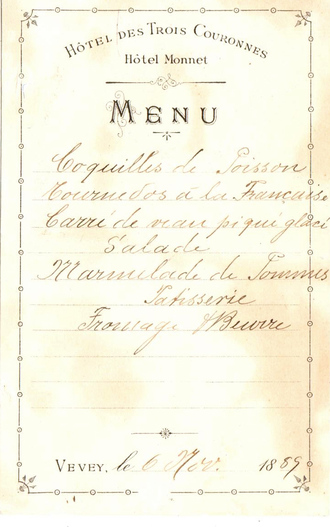 HÔTEL DES TROIS COURONNES
Hôtel Monnet
MENU
Coquilles de Poisson
Tournedos à la Française
Carré de veau piqué glacé
Salade
Marmelade de Pommes
Patisserie
Fromage & Beurre
VEVEY, le 6 Nov. 1889